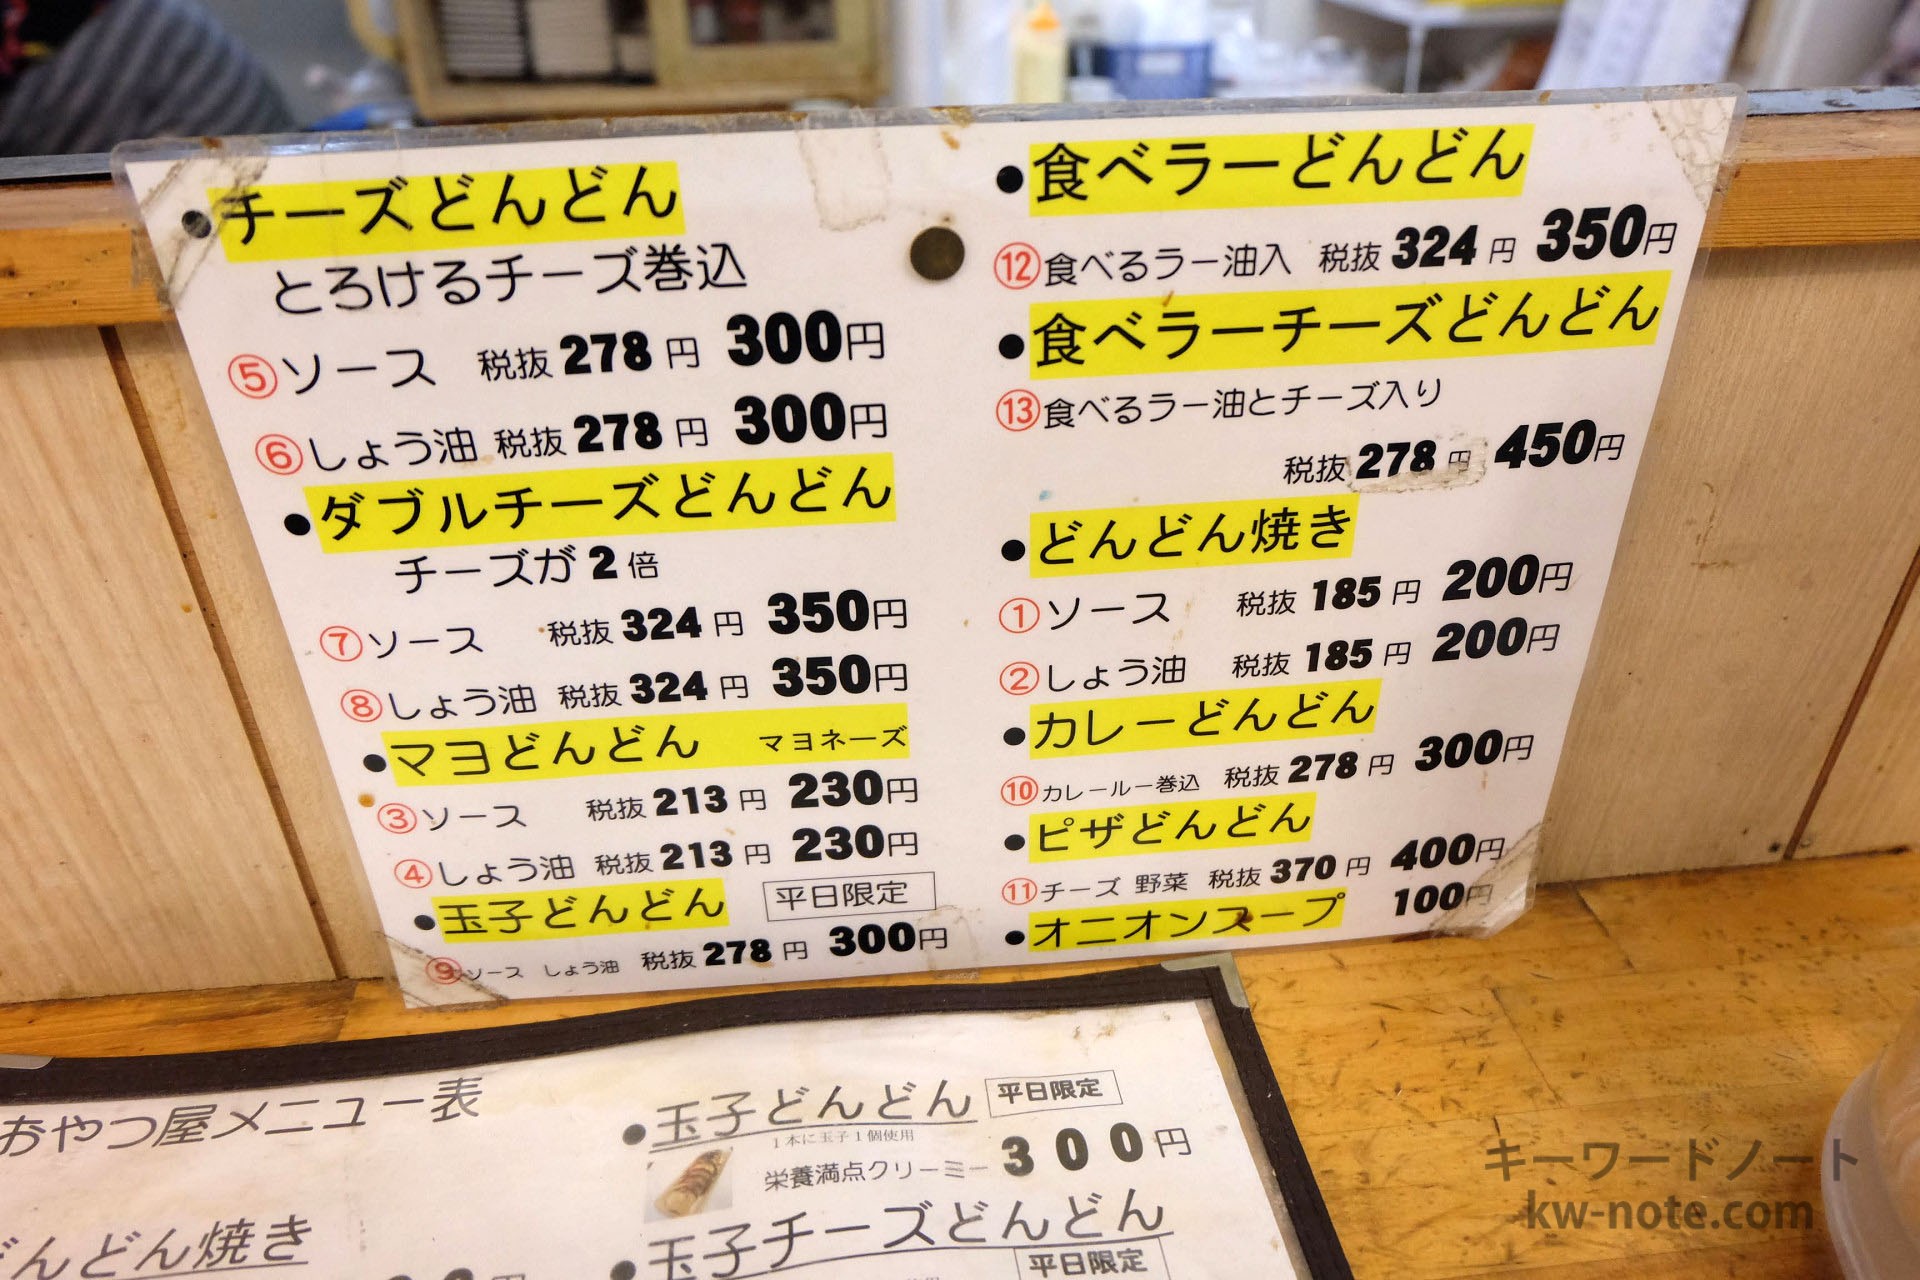 ●チーズどんどん
とろけるチーズ巻込
⑤ソース 税抜278円 300円
⑥しょう油 税抜278円 300円
●ダブルチーズどんどん
チーズが2倍
⑦ソース 税抜324円 350円
⑧しょう油 税抜324円 350円
●マヨどんどん マヨネーズ
③ソース 税抜213円 230円
④しょう油 税抜213円 230円
●玉子どんどん 平日限定
⑨ソース しょう油 税抜278円 300円
●食べラーどんどん
⑫食べるラー油入 税抜324円 350円
●食べラーチーズどんどん
⑬食べるラー油とチーズ入り
税抜278円 450円
●どんどん焼き
①ソース 税抜185円 200円
②しょう油 税抜185円 200円
●カレーどんどん
⑩カレールー巻込 税抜278円 300円
●ピザどんどん
⑪チーズ 野菜 税抜370円 400円
●オニオンスープ 100円
おやつ屋メニュー表
んどん焼き
●玉子どんどん 平日限定
1本に玉子1個使用
栄養満点クリーミー 300円
●玉子チーズどんどん
平日限定
キーワードノート
kw-note.com